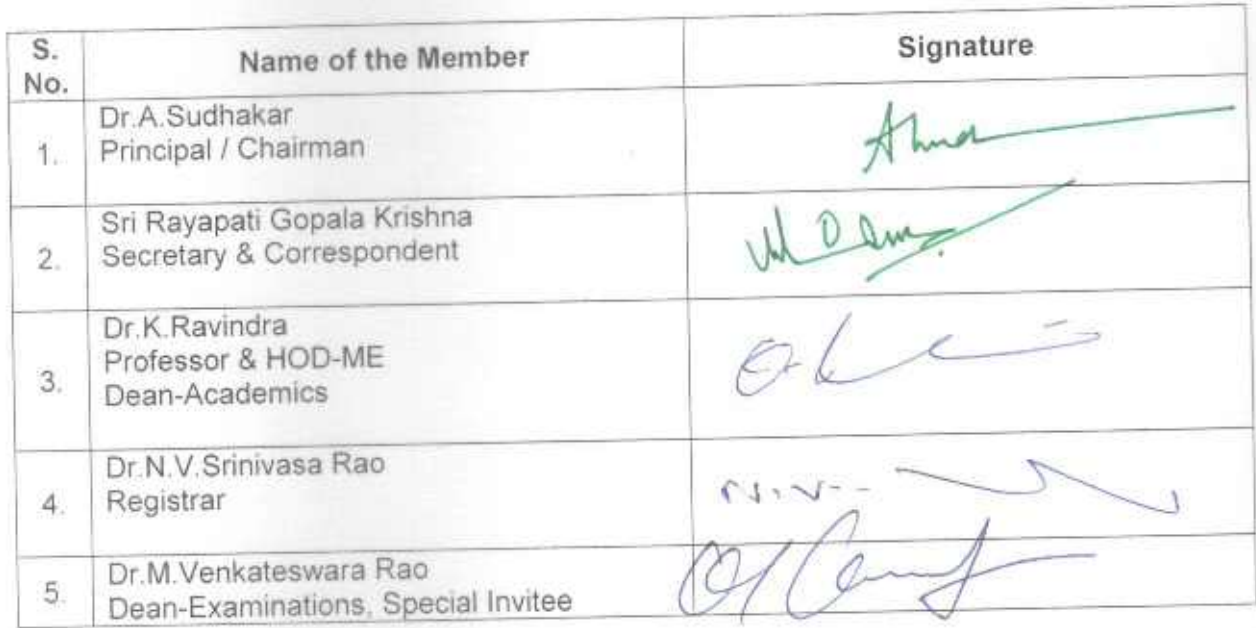 S.
No.
Name of the Member
Signature
1.
Dr.A.Sudhakar
Principal / Chairman
2.
Sri Rayapati Gopala Krishna
Secretary & Correspondent
3.
Dr.K.Ravindra
Professor & HOD-ME
Dean-Academics
4.
Dr.N.V.Srinivasa Rao
Registrar
N.V.
5.
Dr.M.Venkateswara Rao
Dean-Examinations, Special Invitee